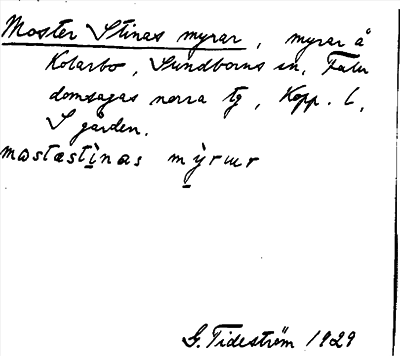 Moster Stinas myrar, myrar å
Kolarbo, Sundborns sn, Falu
domsagas norra tg, Kopp. l,
S gården.
mɷstæstìnas mỳrɯr
G. Tideström 1929